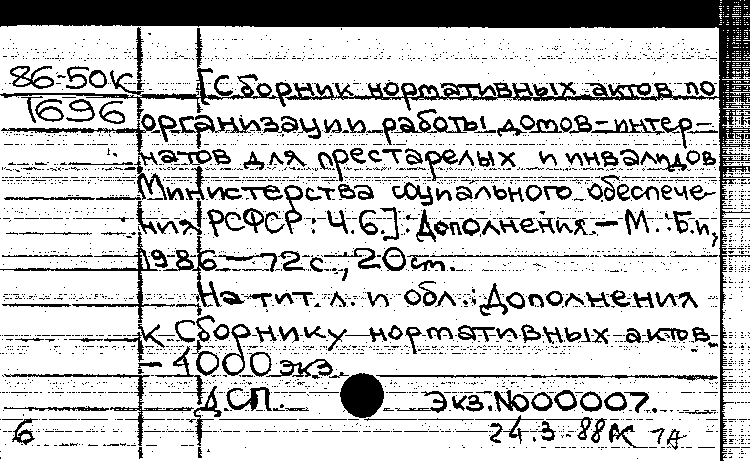 86-50к [Сборник нормативных актов по
1696
организации работы домов-интер-
натов для престарелых и инвалидов
Министерства социального обеспече-
ния РСФСР: Ч.6.]: Дополнения. - М.: Б.и.,
1986 - 72 с.; 20 ст.
На тит. л. и обл.: Дополнения
к Сборнику нормативных актов.
- 4000 экз.
ДСП. Экз. №000007.
6 24.3-88